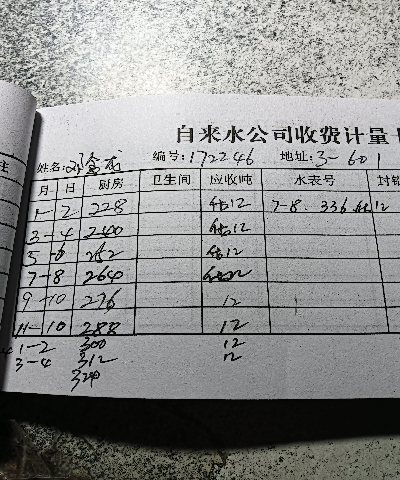 自来水公司收费计量
姓名: 编号:172246 地址:3-601
月 日 厨房 卫生间 应收吨 水表号 封铅
1-2 228 估12 7-8. 336 估12
3-4 240 估12
5-6 252 估12
7-8 264 估12
9-10 276 12
11-10 288 12
1-2 300 12
3-4 312 12
324